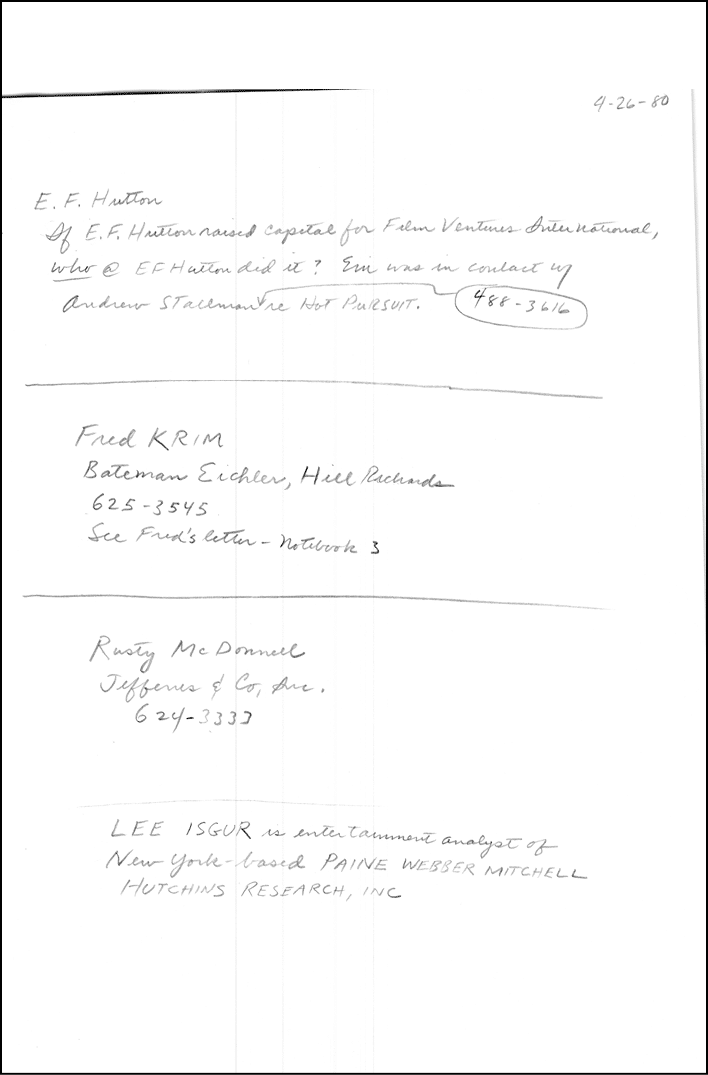 4-26-80
E. F. Hutton
If E.F. Hutton raised capital for Film Ventures International,
who @ EF Hutton did it? Em was in contact w/
Andrew Stallman re Hot PURSUIT. 488-3616
Fred KRIM
Bateman Eichler, Hill Richards
625-3545
See Fred's letter - Notebook 3
Rusty McDonnell
Jefferies & Co, Inc.
624-3333
LEE ISGUR is entertainment analyst of
New York-based PAINE WEBBER MITCHELL
HUTCHINS RESEARCH, INC